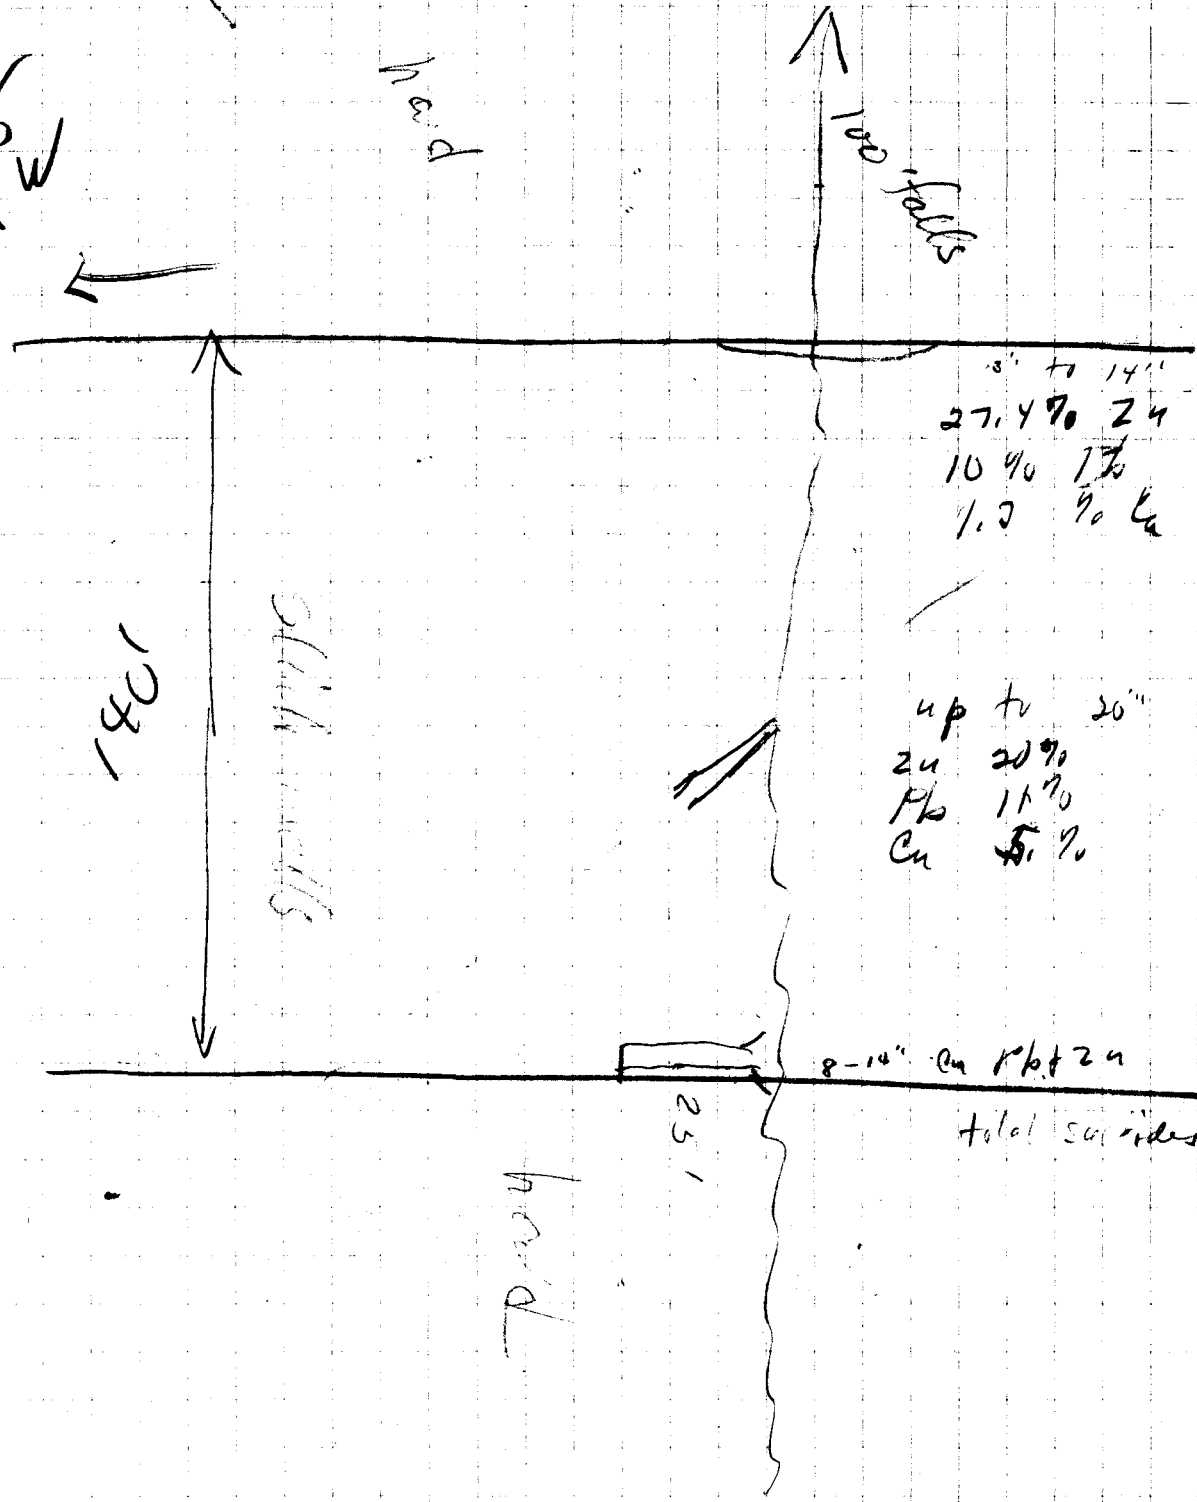 W
hard
100' falls
3" to 14"
27.4% Zn
10 % Pb
1.3 % Cu
140'
up to 20"
Zn 20%
Pb 11%
Cu 5. %
8-14" Cu Pb & Zn
25'
total sulfides
hard